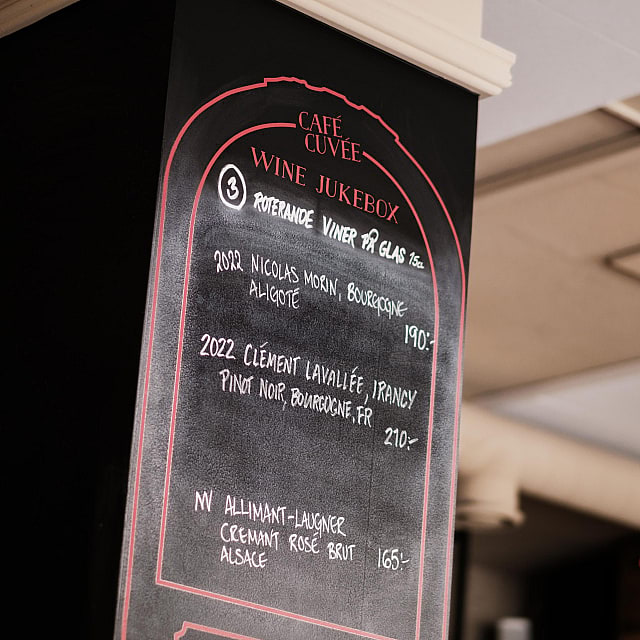 CAFÉ
CUVÉE
WINE JUKEBOX
3 ROTERANDE VINER PÅ GLAS 15cl
2022 NICOLAS MORIN, BOURGOGNE
ALIGOTÉ
190:-
2022 CLÉMENT LAVALLÉE, IRANCY
PINOT NOIR, BOURGOGNE, FR
210:-
NV ALLIMANT-LAUGNER
CREMANT ROSÉ BRUT
ALSACE 165:-